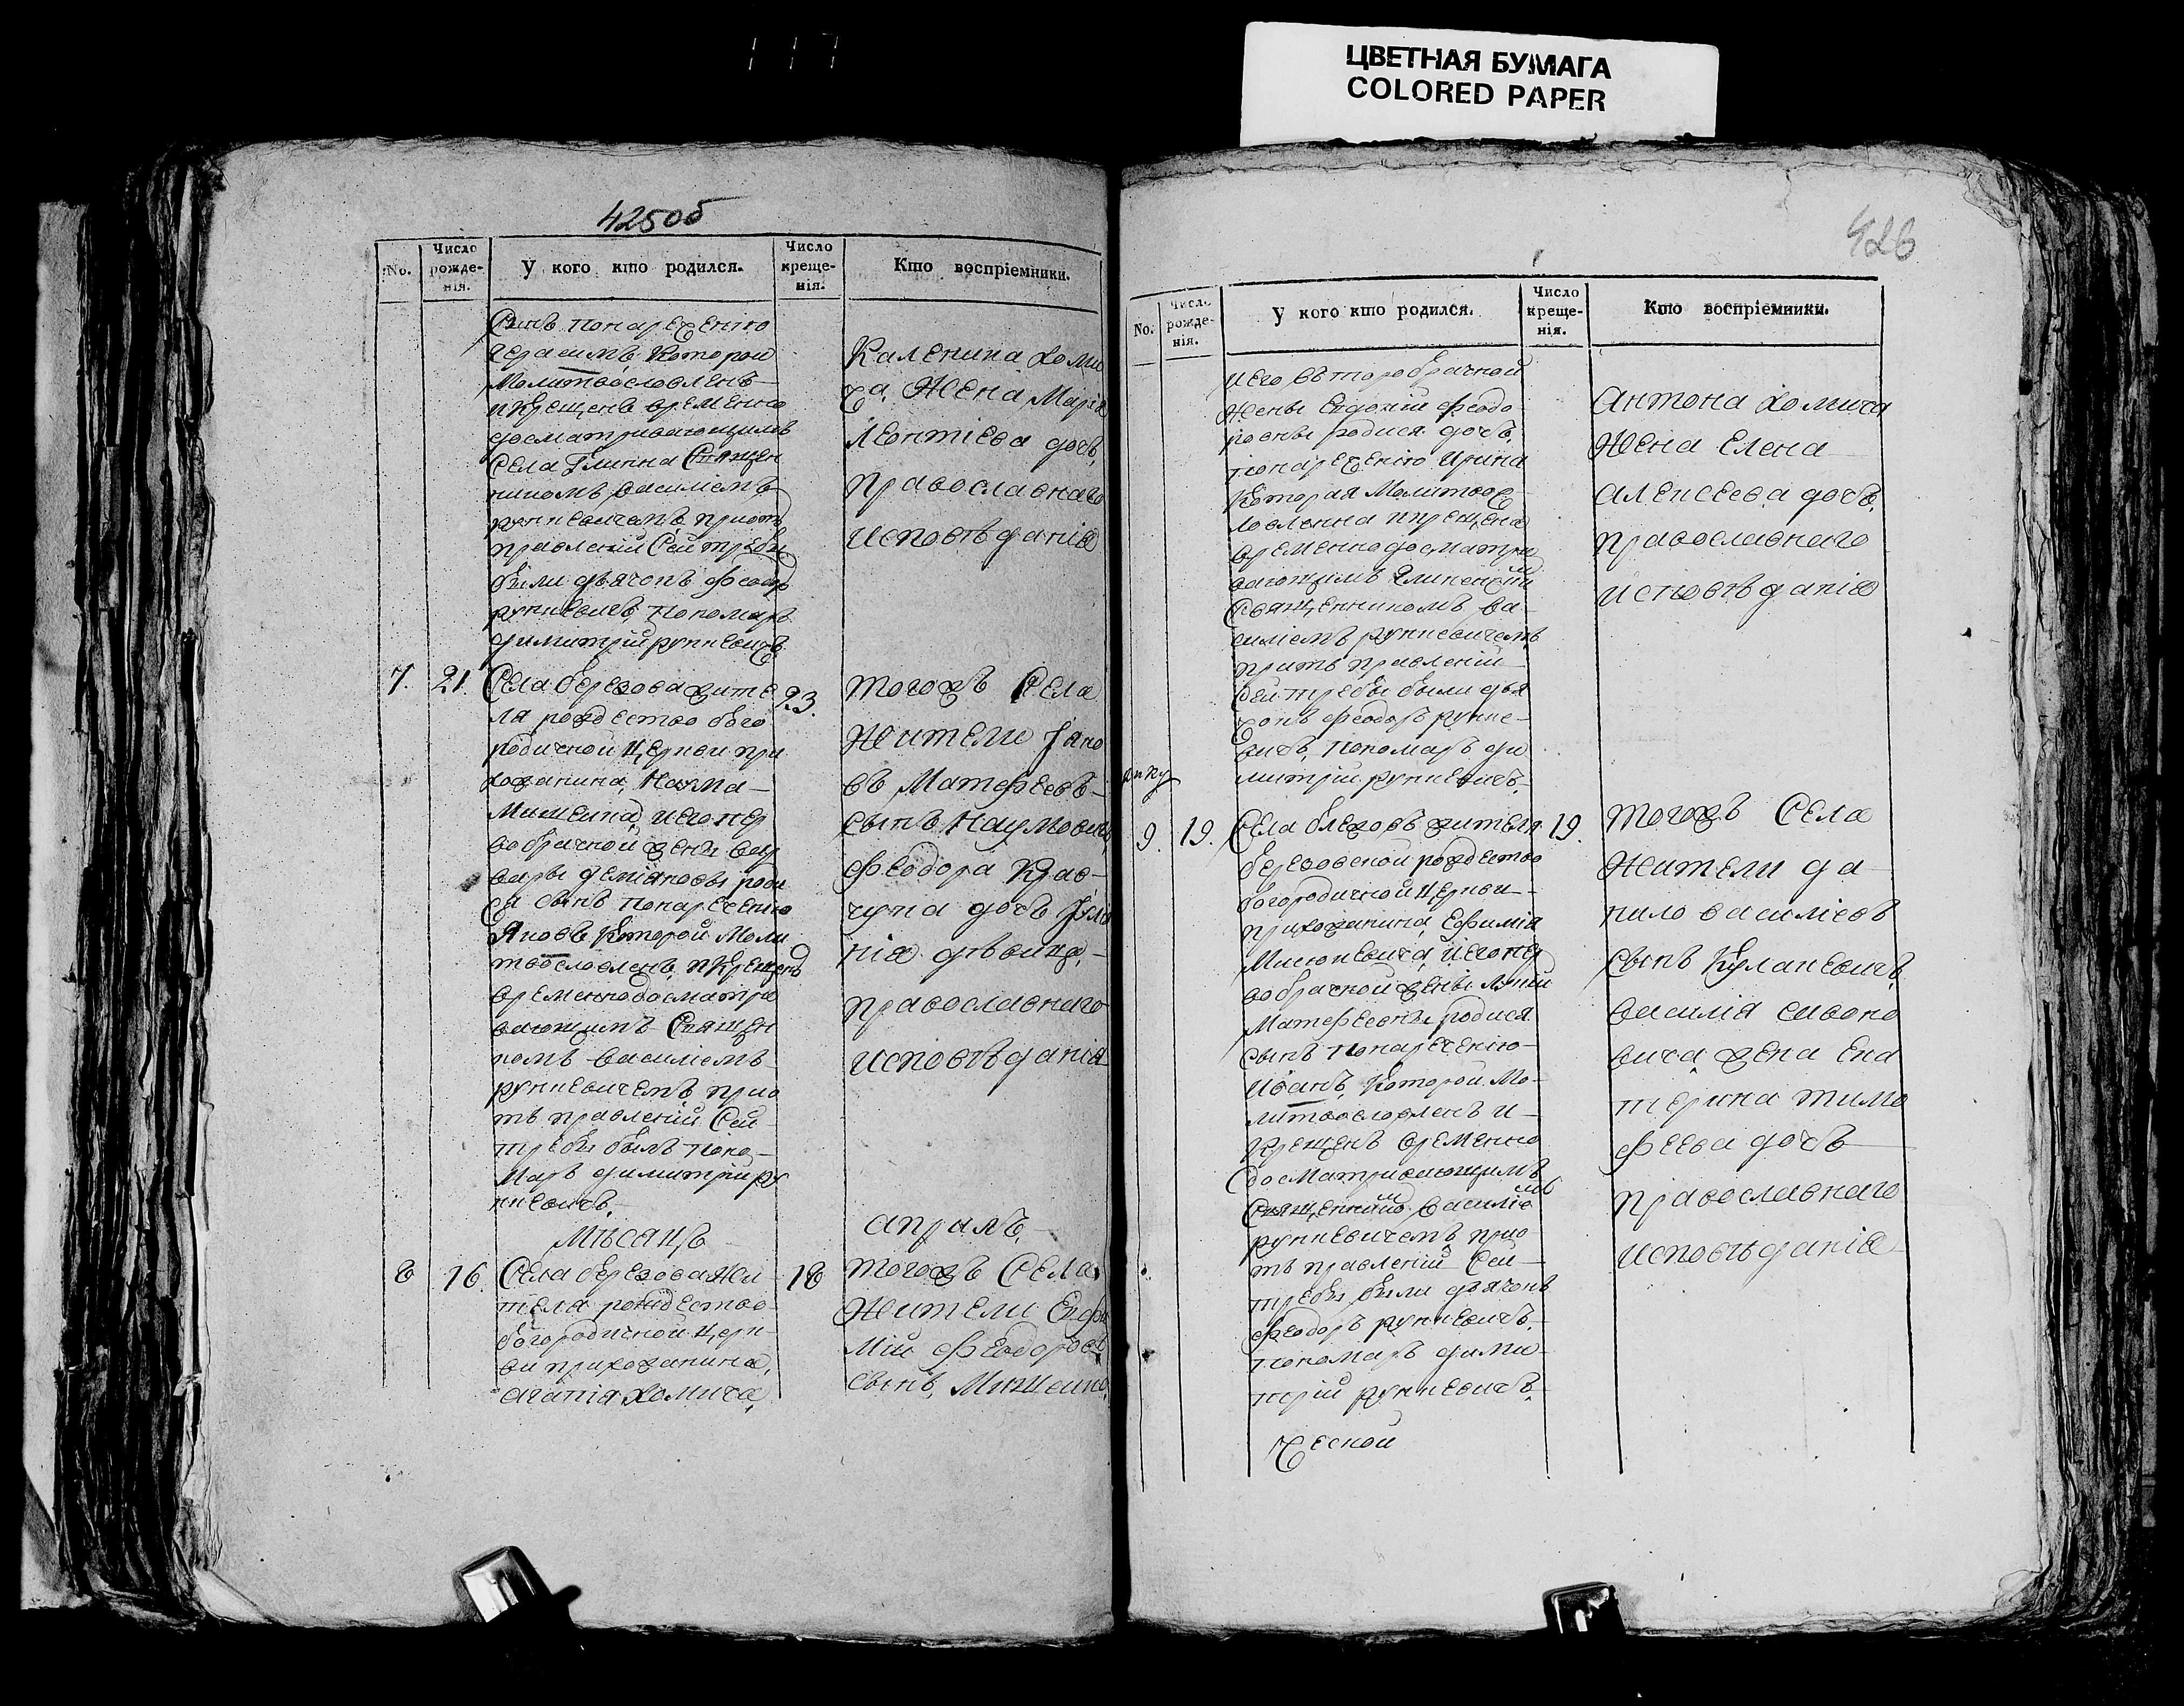 ЦВЕТНАЯ БУМАГА
COLORED PAPER
425об
No.
Число рожде-нія.
У кого кто родился.
Число креще-нія.
Кто воспріемники.
Сынъ понареченію
Герасимъ, Которой
Молитвословленъ
и Крещенъ временно
досматривающимъ
Села Глинна Священ
никомъ Василіемъ
рункевичемъ, приотъ
правленій Сей требы
были дьячокъ Феодоръ
рункевичъ, пономарь
димитрій рункевичъ.
Каленика хоми
ча, Жена Марія
Леонтіева дочь,
православнаго
исповѣданія
7.
21.
Села березова жите
ля рождество бого
родичной Церкви при
хожанина, Наума
Мишеина, иегопер
вобрачной жены вар
вары деміяновы роди
ся сынъ понареченію
Яковъ Которой Моли
твословленъ, и Крещенъ
временнодосматри
вающимъ Священ
комъ василіемъ
рункевичемъ прио
тъ правленій Сей
требы былъ поно
Марь димитрій ру
нкевичъ.
23.
тогожъ Села
Жители Яко
въ Матфеевъ
сынъ Наумовичъ,
Феодора Крав-
чука дочь Уліа
нія дѣвица,
православнаго
исповѣданія
Мѣсяцъ
априлъ,
8
16.
Села березова Жи
теля рождество
богородичной церк
ви прихожанина,
агапія хомича,
18
тогожъ Села
Жители Евфи
мій Феодоровъ
сынъ, Мишеинъ,
426
No.
Число рожде-нія.
У кого кто родился.
Число креще-нія.
Кто воспріемники.
иего второбрачной
Жены Евдокіи Феодо
ровны родися дочь,
понареченію Ирина
Которая Молитвос
ловленна икрещена
временнодосматри
вающимъ Глинскимъ
Священникомъ ва-
силіемъ рункевичемъ
приотъ правленій
сей требы были дья
чокъ Феодоръ рунке-
вичъ, пономарь ди
митрій рункевичъ.
Антона хомича
Жена Елена
алексеева дочь,
православнаго
исповѣданія
9.
19.
Села блежовъ жителя
березовской рождество
богородичной церкви
прихожанина, Ефимія
Мисюкевича, иегопер
вобрачной жены Лукіи
Матфеевны родися
сынъ понареченію
Иванъ, Которой Мо-
литвословленъ и
Крещенъ временно
досматривающимъ
Священникомъ Василіемъ
рункевичемъ, прио
тъ правленій Сей
требы были дьячокъ
Феодоръ рункевичъ,
пономарь дими
трій рункевичъ.
19.
тогожъ Села
Жители да
нило василіевъ
сынъ Кулакевичъ,
василія
вича жена Ека
терина тимо
феева дочь
православнаго
исповѣданія
Ческой